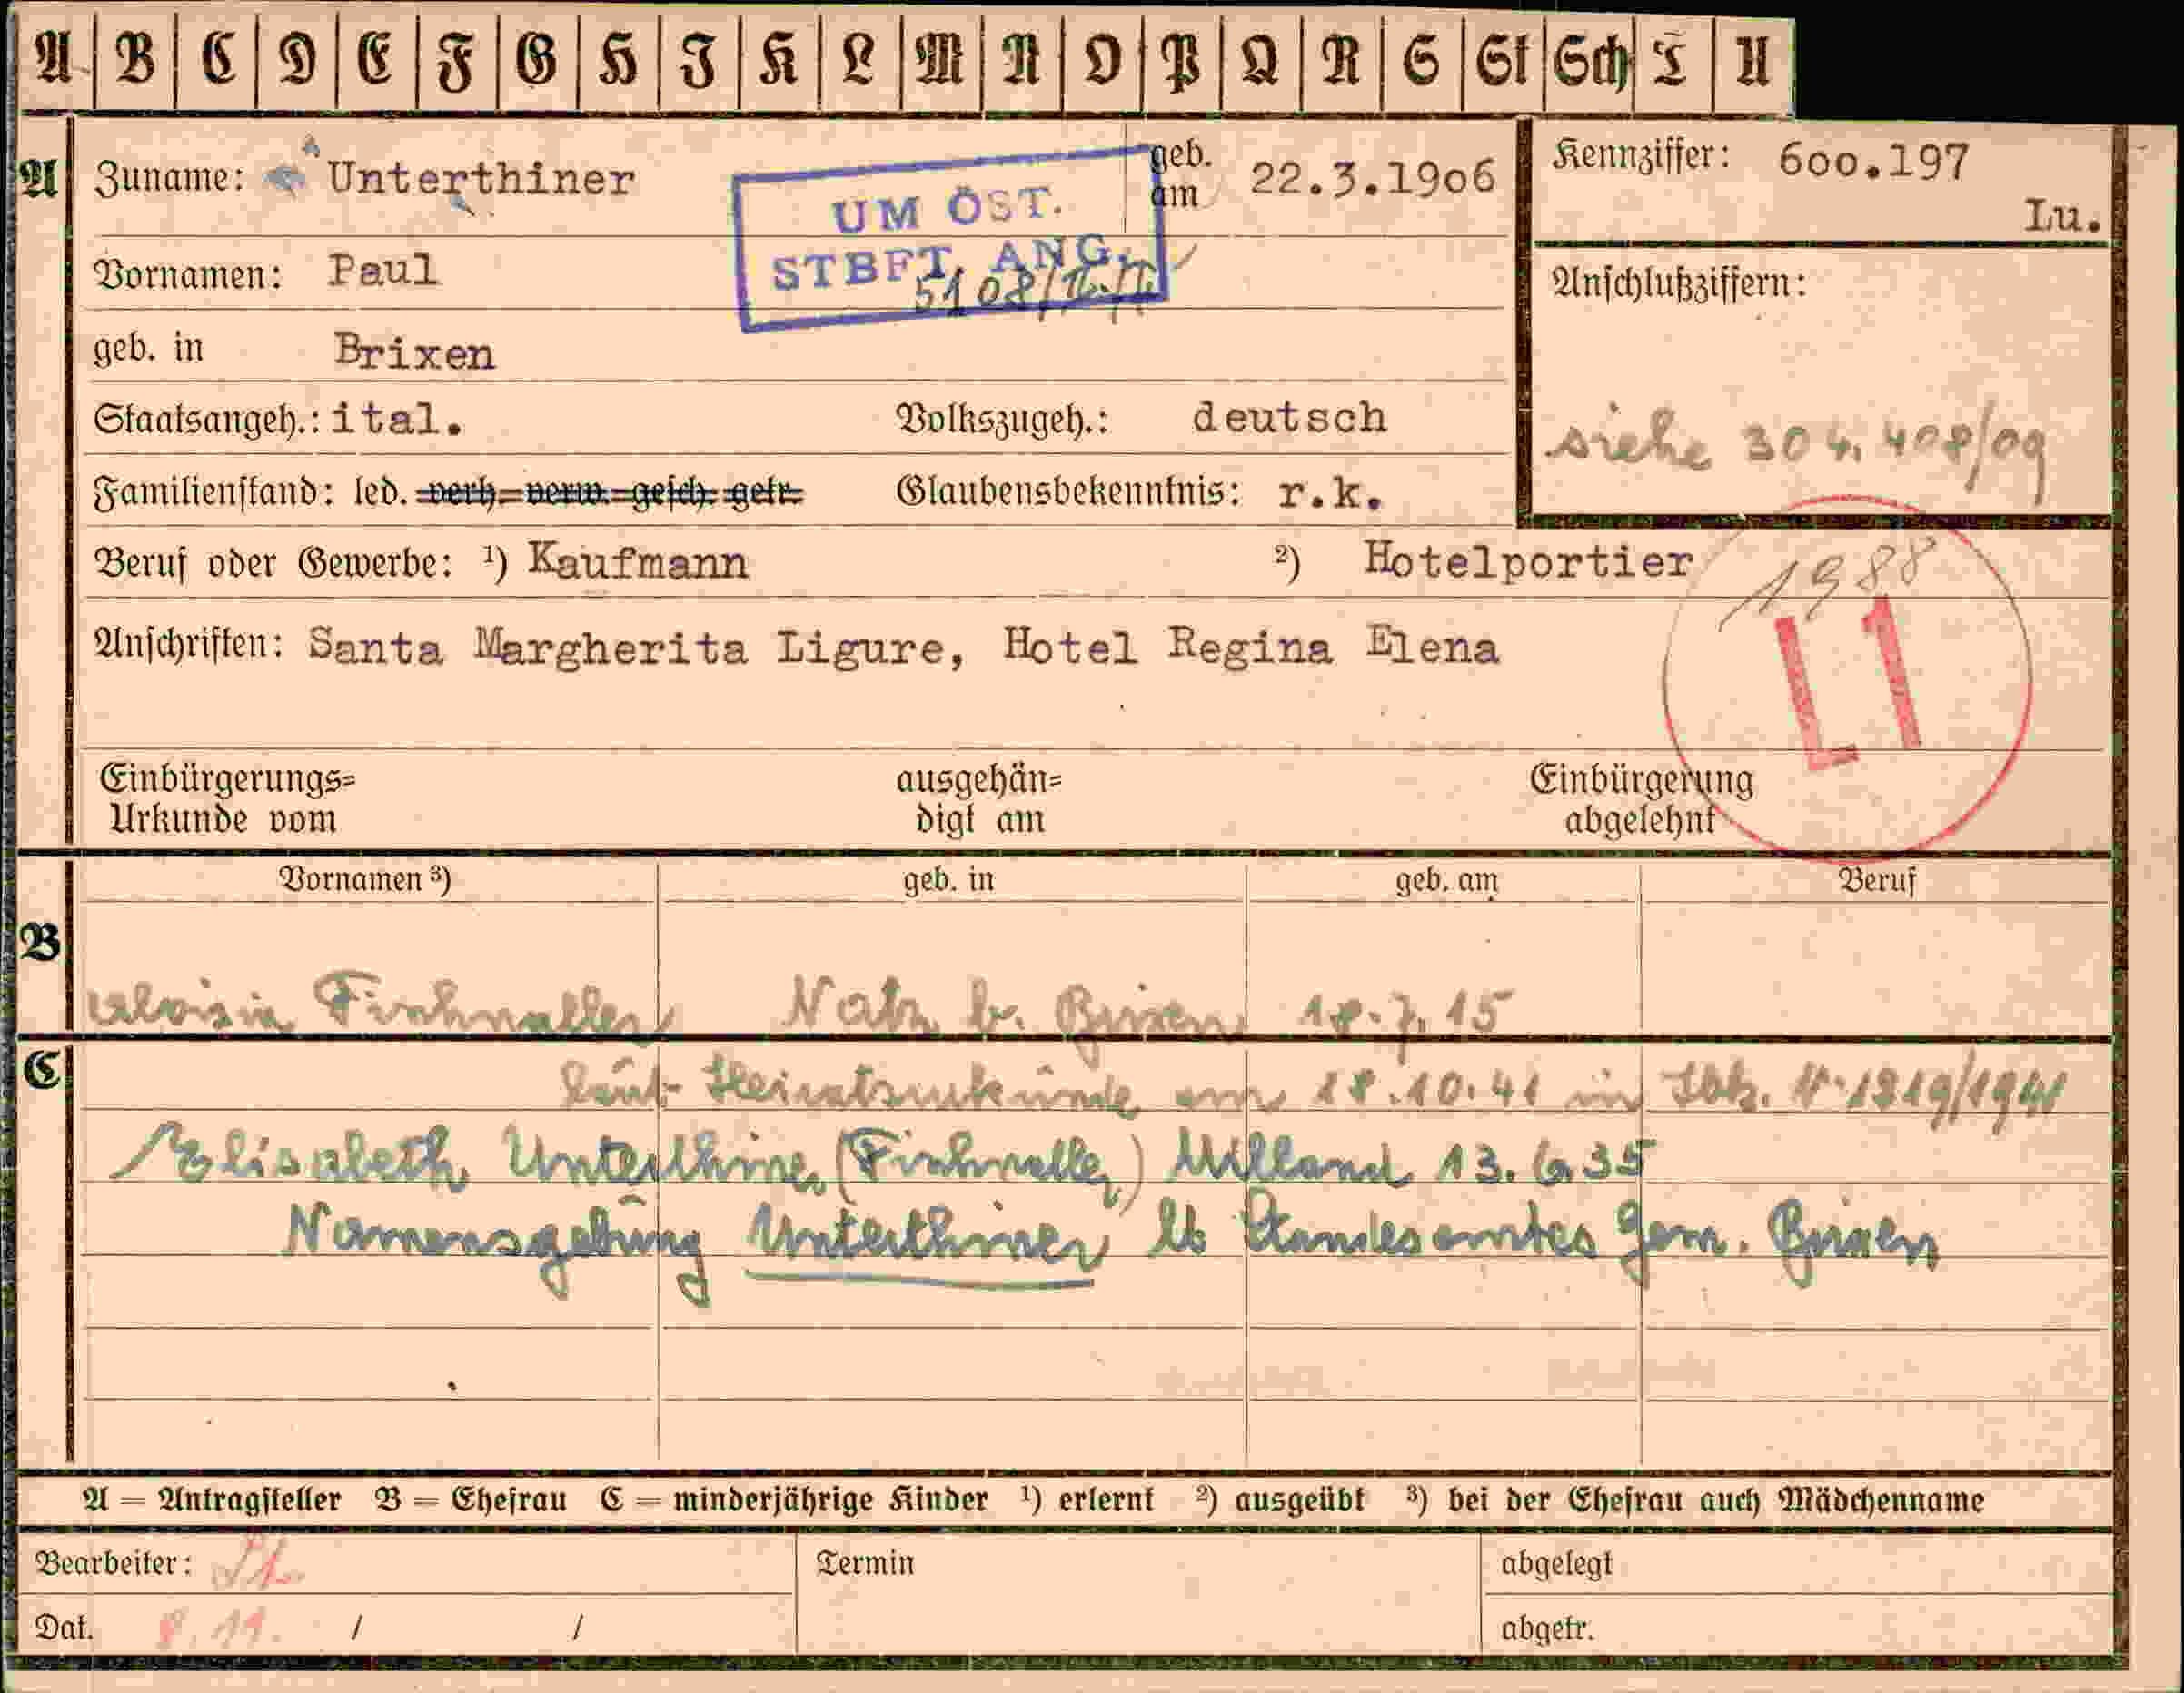 A B C D E F G H I K L M N O P Q R S St Sch T U
A Zuname: Unterthiner geb. am 22.3.1906 Kennziffer: 600.197
Lu.
UM ÖST.
STBFT. ANG.
5108/II./I
Vornamen: Paul Anschlußziffern:
geb. in Brixen
Staatsangeh.: ital. Volkszugeh.: deutsch siehe 304.408/09
Familienstand: led. verh. verw. gesch. getr. Glaubensbekenntnis: r.k.
Beruf oder Gewerbe: ¹) Kaufmann ²) Hotelportier 1988
L1
Anschriften: Santa Margherita Ligure, Hotel Regina Elena
Einbürgerungs= ausgehän= Einbürgerung
Urkunde vom digt am abgelehnt
Vornamen ³) geb. in geb. am Beruf
B
Aloisia Fischnaller Natz b. Brixen 18.7.15
C laut Heiratsurkunde am 18.10.41 in 1319/1941
Elisabeth Unterthiner (Fischnaller) Milland 13.6.35
Namensgebung Unterthiner lt Standesamtes Gem. Brixen
A = Antragsteller B = Ehefrau C = minderjährige Kinder ¹) erlernt ²) ausgeübt ³) bei der Ehefrau auch Mädchenname
Bearbeiter: Termin abgelegt
Dat. 8.11. / / abgetr.